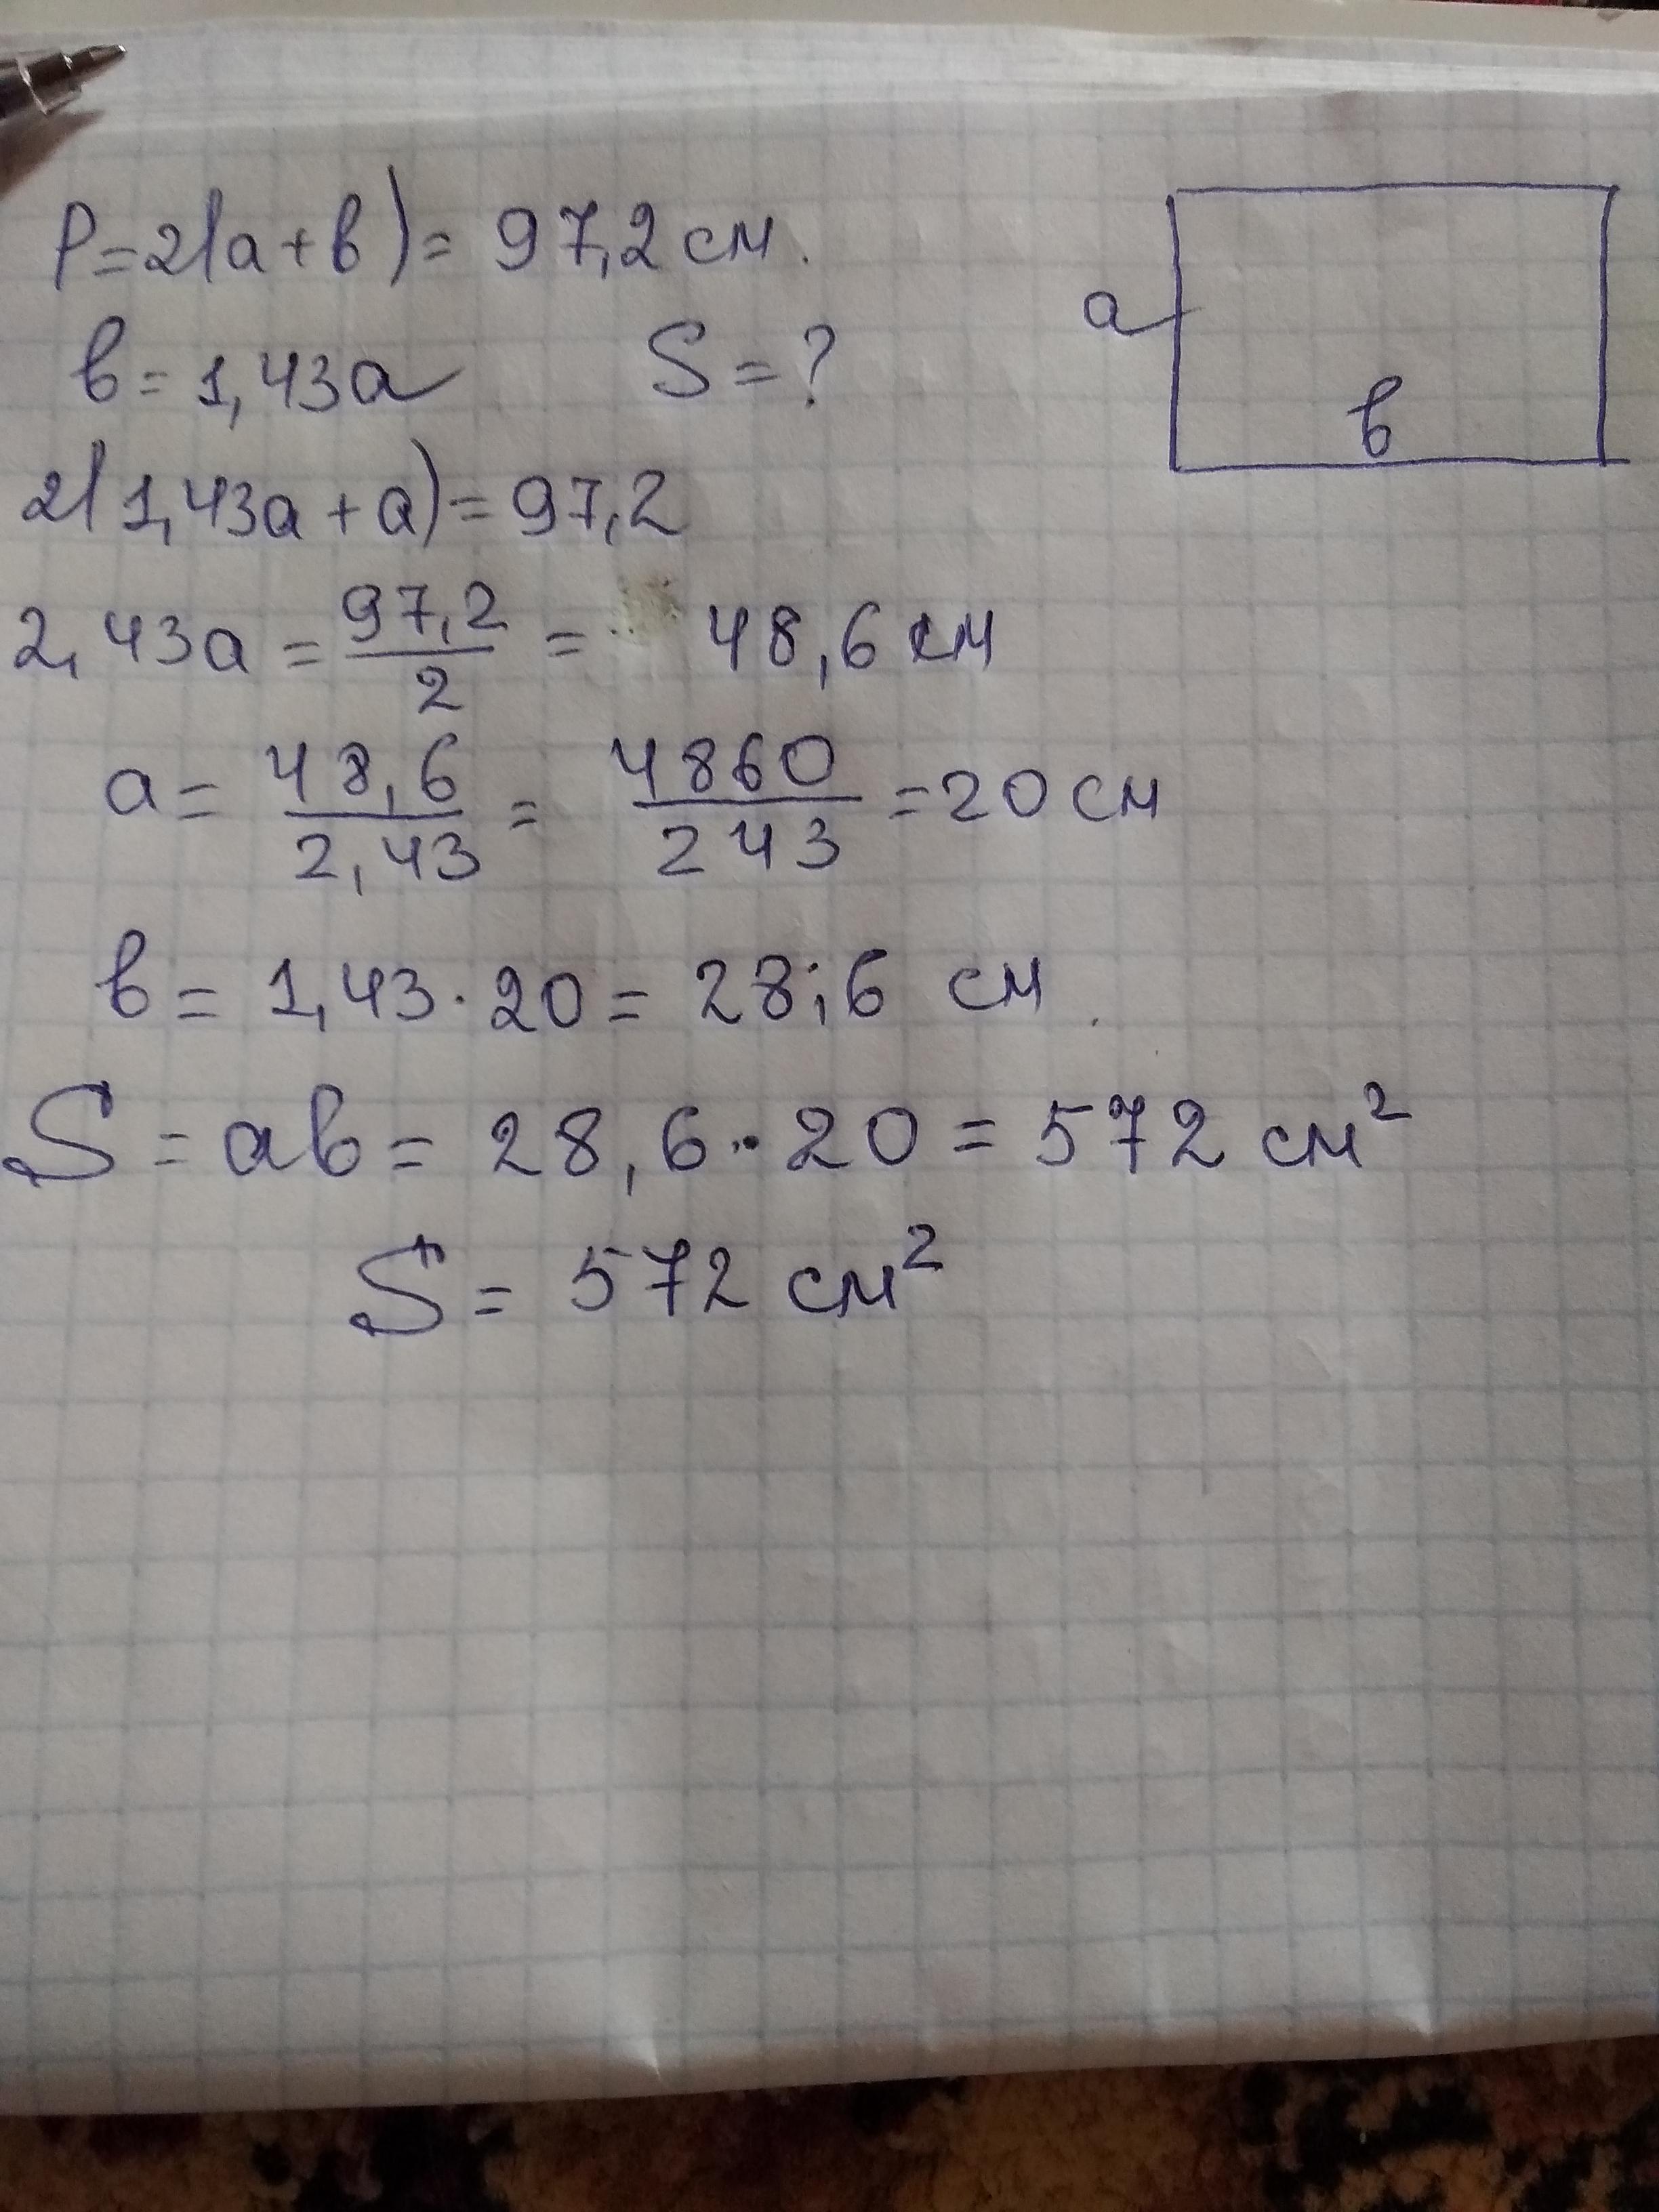 P=2(a+b)= 97,2 см.
b=1,43a S=?
a
b
2(1,43a+a)=97,2
2,43a = 97,2/2 = 48,6 см
a= 48,6/2,43 = 4860/243 =20 см
b= 1,43·20= 28,6 см.
S=ab= 28,6·20= 572 см²
S= 572 см²